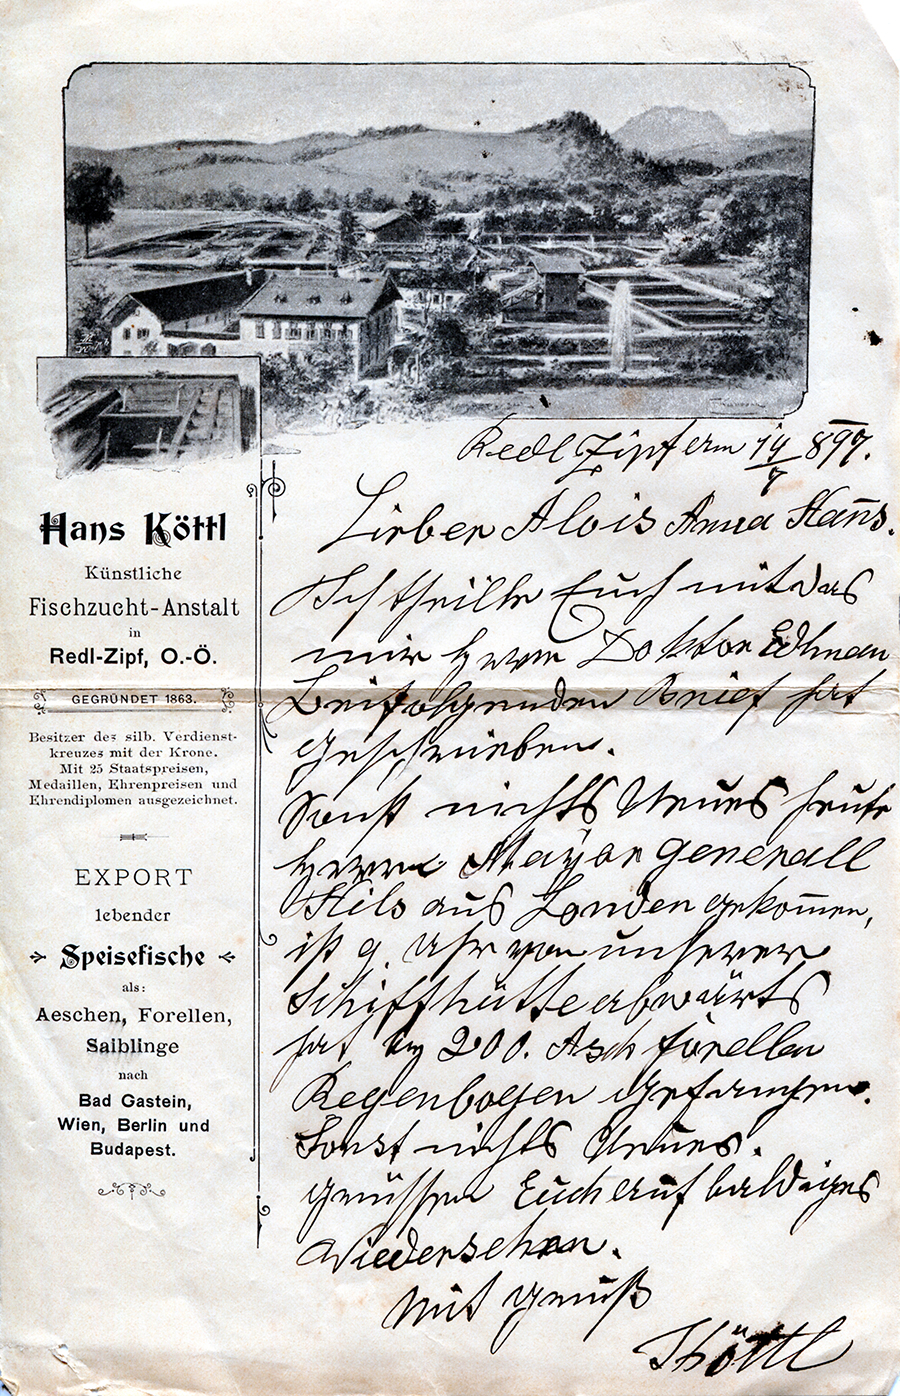 Hans Köttl
Künstliche
Fischzucht-Anstalt
in
Redl-Zipf, O.-Ö.
GEGRÜNDET 1863.
Besitzer des silb. Verdienst-
kreuzes mit der Krone.
Mit 25 Staatspreisen,
Medaillen, Ehrenpreisen und
Ehrendiplomen ausgezeichnet.
EXPORT
lebender
Speisefische
als:
Aeschen, Forellen,
Saiblinge
nach
Bad Gastein,
Wien, Berlin und
Budapest.
Redl Zipf am 14/7 897.
Lieber Alois Anna Hans.
Ich theille Euch mit das
mir Herrn Doktor
Beifolgenden Brief hat
geschrieben.
Sonst nichts Neues heute
Herrn Mayor generall
aus Londen gekommen,
ist 9. Uhr von unserer
Schiffhütte abwärts
hat 200. Asch forellen
Regenbogen gefangen.
Sonst nichts Neues.
grüssen Euch auf baldiges
Wiedersehen.
Mit gruß
Köttl